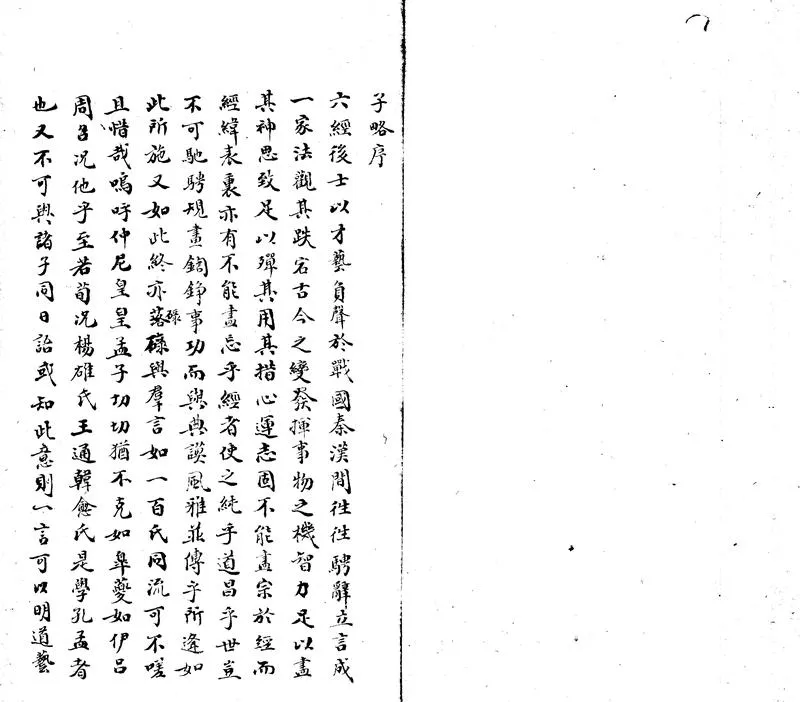 子略序
六經後士以才藝負聲於戰國秦漢間往往騁辭立言成
一家法觀其跌宕古今之變發揮事物之機智力足以盡
其神思致足以殫其用其措心運志固不能盡宗於經而
經緯表裏亦有不能盡忘乎經者使之純乎道昌乎世豈
不可馳騁規畫鏑錚事功而與典謨風雅並傳乎所逢如
此所施又如此終亦落碌碌與羣言如一百氏同流可不嗟
且惜哉嗚呼仲尼皇皇孟子切切猶不克如皐夔如伊呂
周召况他乎至若荀况楊雄氏王通韓愈氏是學孔孟者
也又不可與諸子同日語或知此意則一言可以明道藝